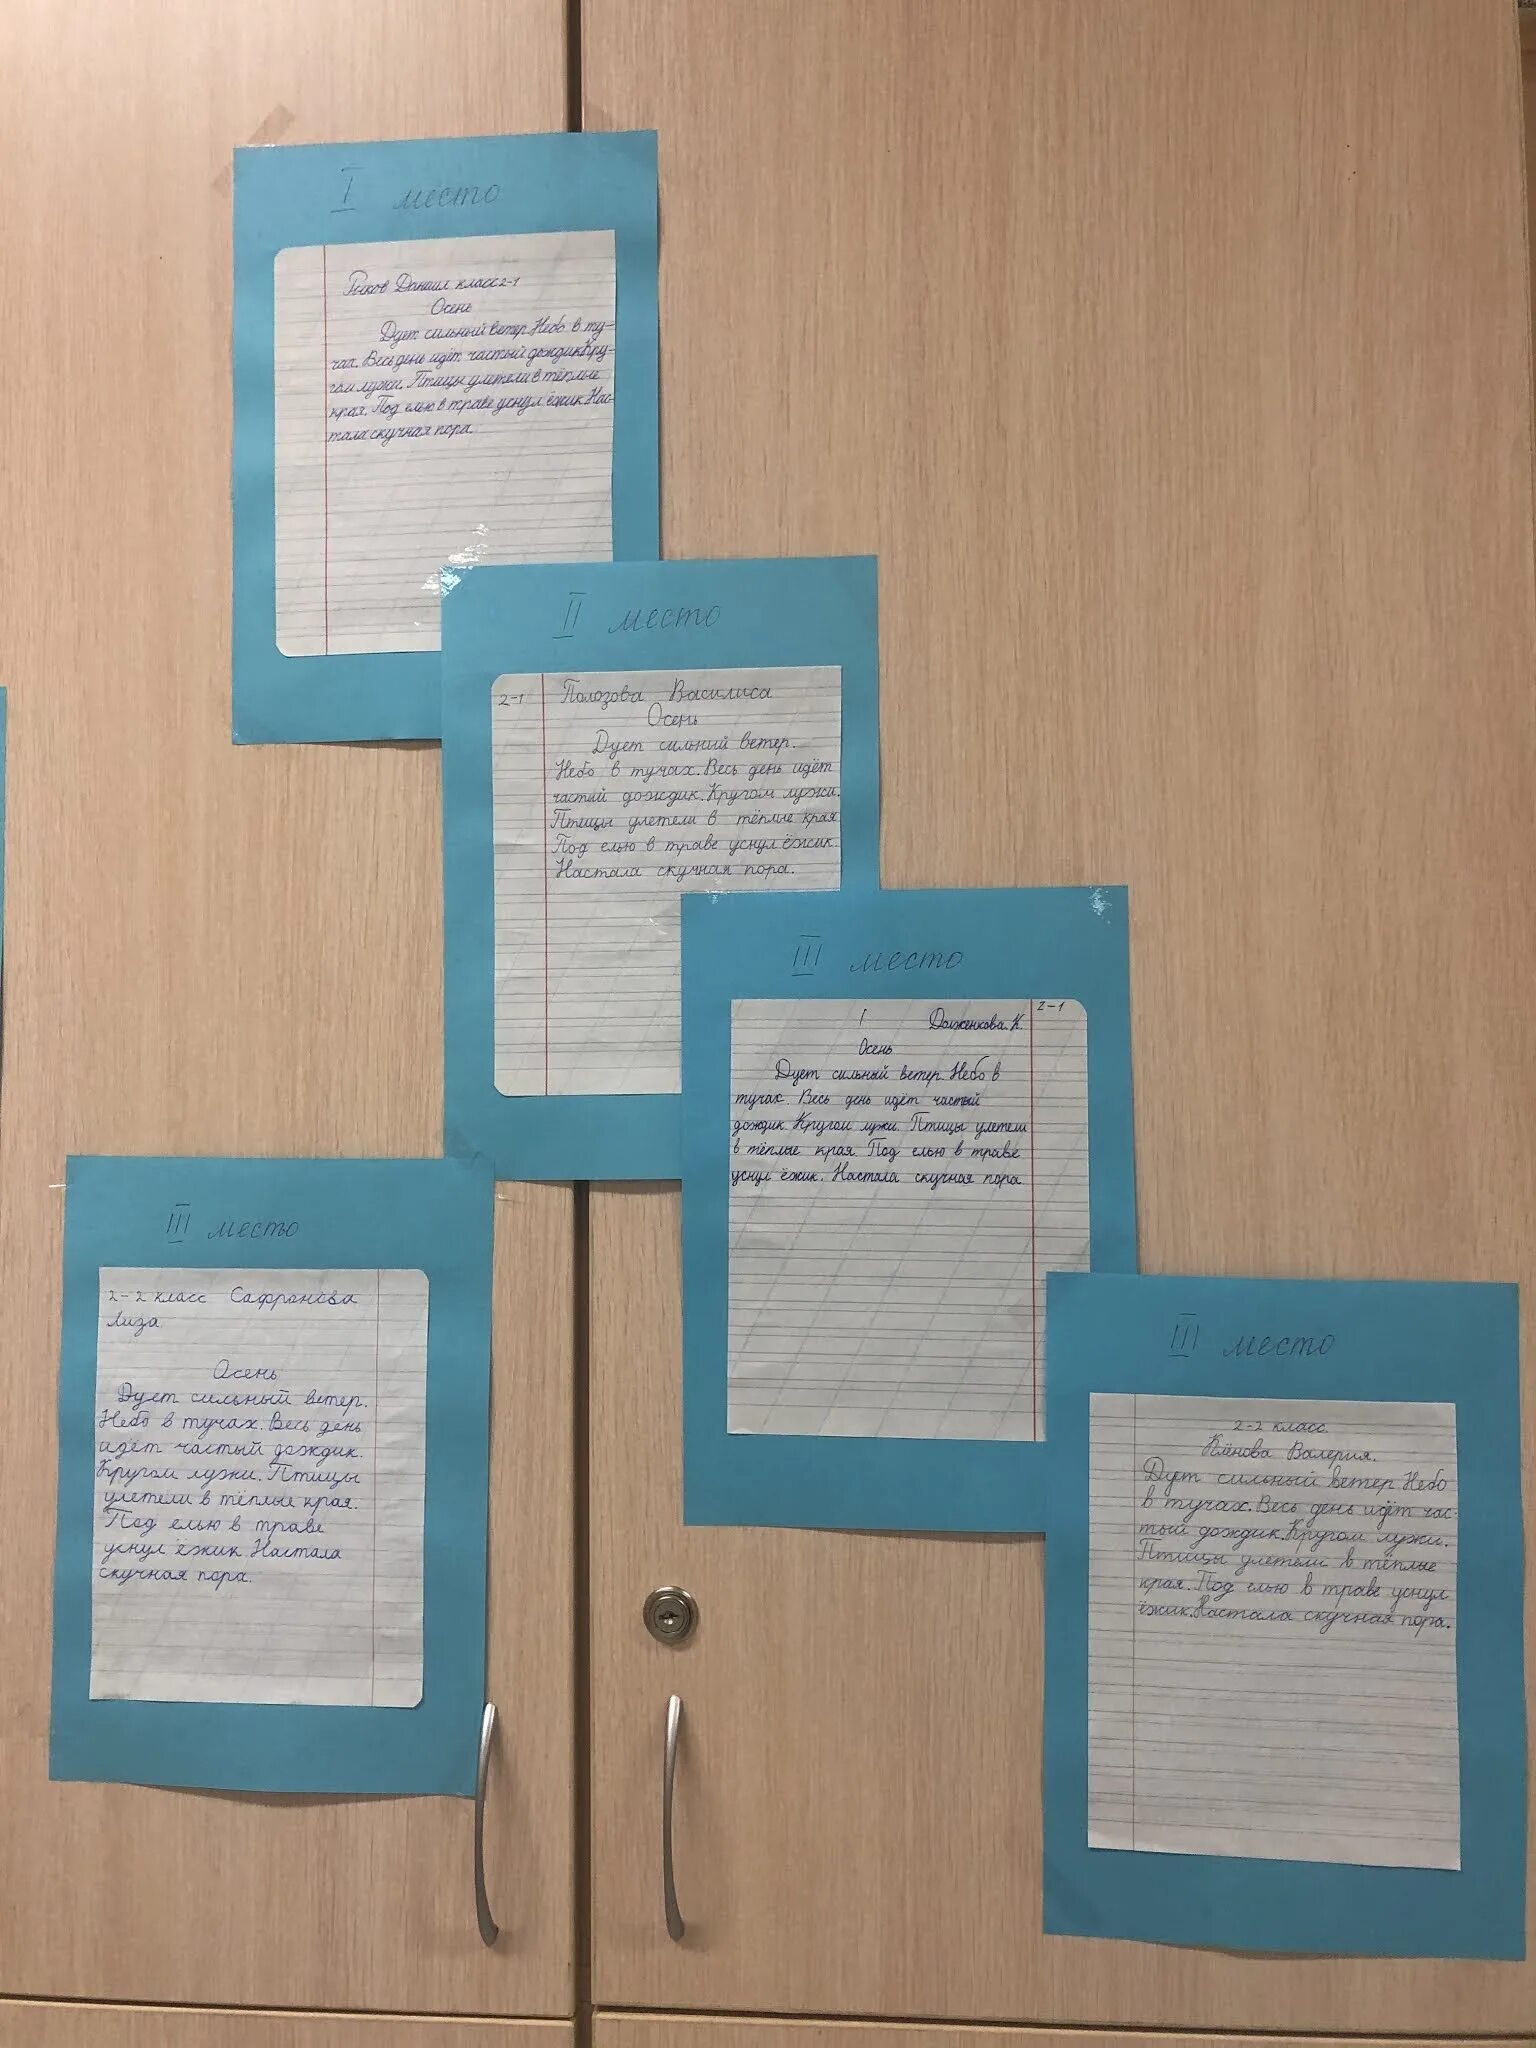 I место
Рыков Даниил класс 2-1
Осень
Дует сильный ветер. Небо в ту-
чах. Весь день идёт частый дождик. Кру-
гом лужи. Птицы улетели в тёплые
края. Под елью в траве уснул ёжик. Нас-
тала скучная пора.
II место
2-1 Полозова Василиса
Осень
Дует сильний ветер.
Небо в тучах. Весь день идёт
частый дождик. Кругом лужи.
Птицы улетели в тёплые края
Под елью в траве уснул ёжик.
Настала скучная пора.
III место
I Долженкова. К. 2-1
Осень
Дует сильный ветер. Небо в
тучах. Весь день идёт частый
дождик. Кругом лужи. Птицы улетели
в тёплые края. Под елью в траве
уснул ёжик. Настала скучная пора
III место
2-2 класс Сафронова
Лиза
Осень
Дует сильный ветер.
Небо в тучах. Весь день
идёт частый дождик.
Кругом лужи. Птицы
улетели в тёплые края.
Под елью в траве
уснул ёжик. Настала
скучная пора.
III место
2-2 класс.
Клёнова Валерия.
Дует сильный ветер. Небо
в тучах. Весь день идёт час-
тый дождик. Кругом лужи.
Птицы улетели в тёплые
края. Под елью в траве уснул
ёжик. Настала скучная пора.